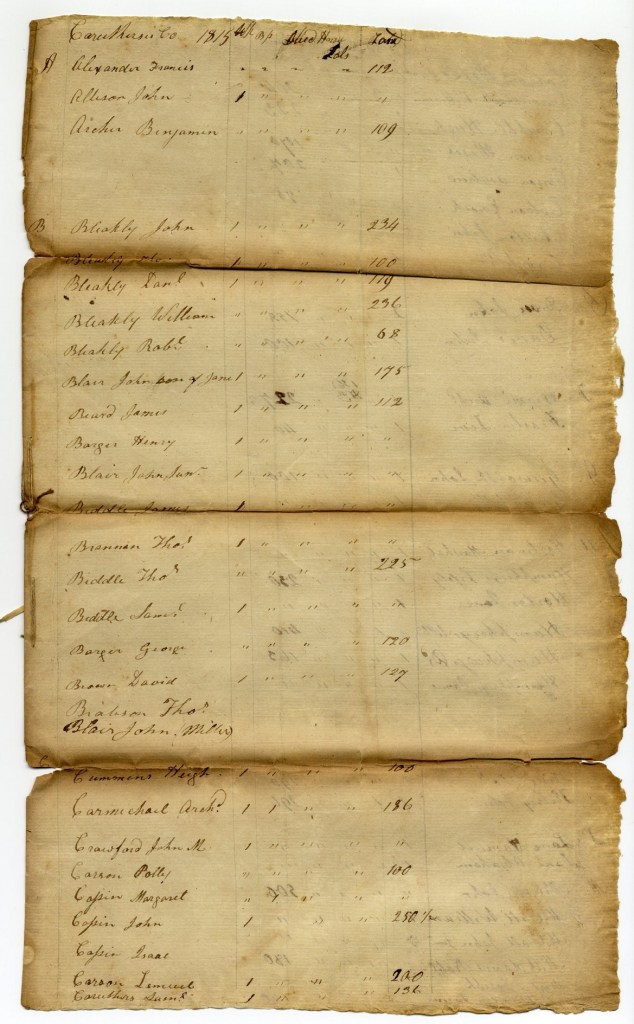 Caruthers Co 1815 W.P B.P Stud Horses Lots Land
A Alexander Francis " " " " 112
Allison John 1 " " " "
Archer Benjamin " " " " 109
B Bleakly John 1 " " " 234
Bleakly 1 " " " 100
Bleakly Danl 1 " " " 119
Bleakly William " " " " 236
Bleakly Robt " " " " 68
Blair John son of Jane 1 " " " 175
Beard James 1 " 2 " 112
Barger Henry 1 " " " "
Blair John Junr 1 " " " "
Biddle James 1 " " " "
Brannan Thos 1 " " " "
Biddle Thos " " " " 225
Biddle Saml 1 " " " "
Barger George " " " " 120
Brown David 1 " " " 127
Brabson Thos
Blair John (Miller)
Cummens Hugh 1 " " " 100
Carmichael Archd 1 1 " " 186
Crawford John M 1 " " " "
Carson Polly " " " " 100
Cassin Margaret " " " " "
Cassin John 1 " " " 250 1/2
Cassin Isaac
Carson Lemuel 1 " " " 200
Caruthers Saml 1 " " " 136